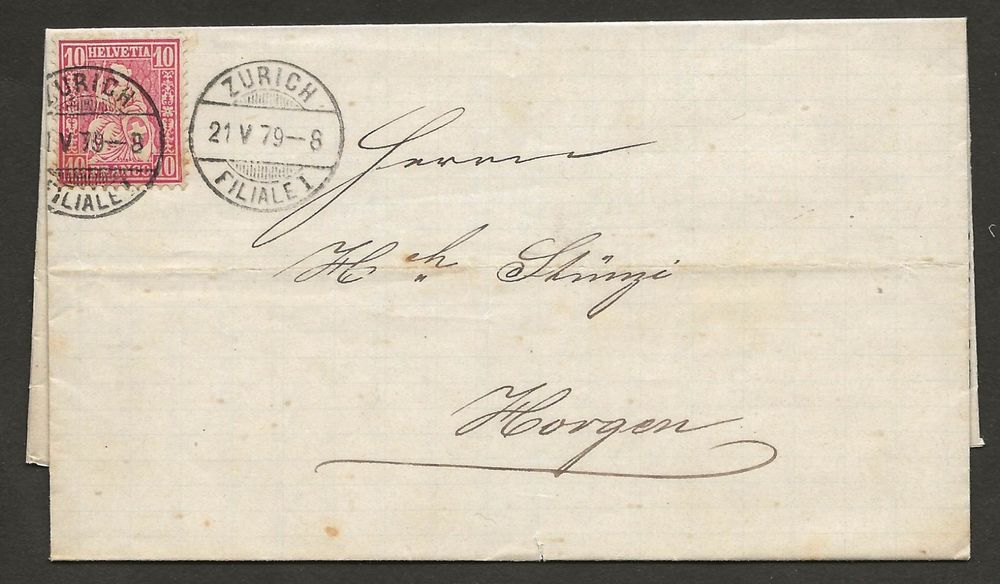 10 HELVETIA 10
ZURICH
V 79—8
FILIALE I
10 10
ZURICH
21 V 79—8
FILIALE I
Herrn
Hch Stünzi
Horgen